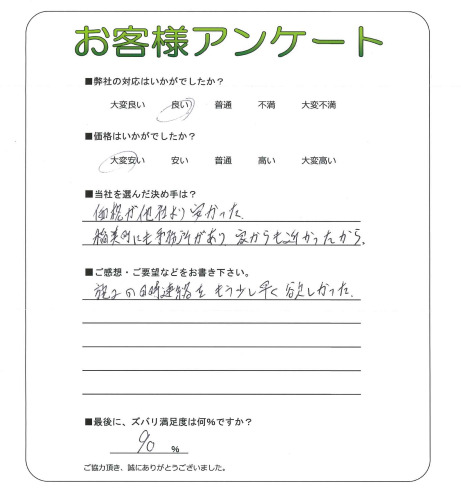 お客様アンケート
■弊社の対応はいかがでしたか？
大変良い 良い 普通 不満 大変不満
■価格はいかがでしたか？
大変安い 安い 普通 高い 大変高い
■当社を選んだ決め手は？
価格が他社より安かった
稲美町にも事務所があり 家からも近かったから.
■ご感想・ご要望などをお書き下さい。
施工の日時連絡を もう少し早く 欲しかった.
■最後に、ズバリ満足度は何％ですか？
90 ％
ご協力頂き、誠にありがとうございました。